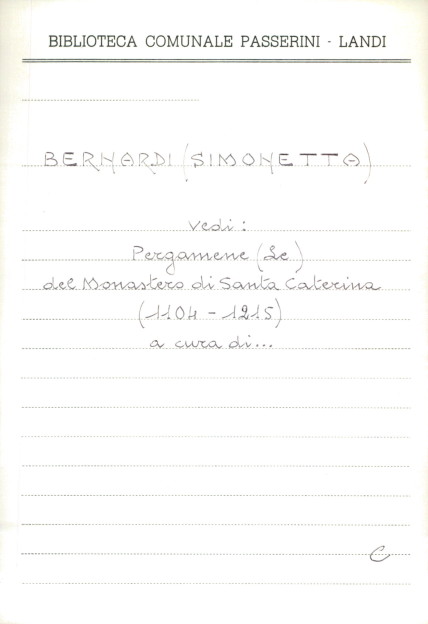 BIBLIOTECA COMUNALE PASSERINI - LANDI
BERNARDI (SIMONETTA)
vedi:
Pergamene (Le)
del Monastero di Santa Caterina
(1104 - 1215)
a cura di...
C